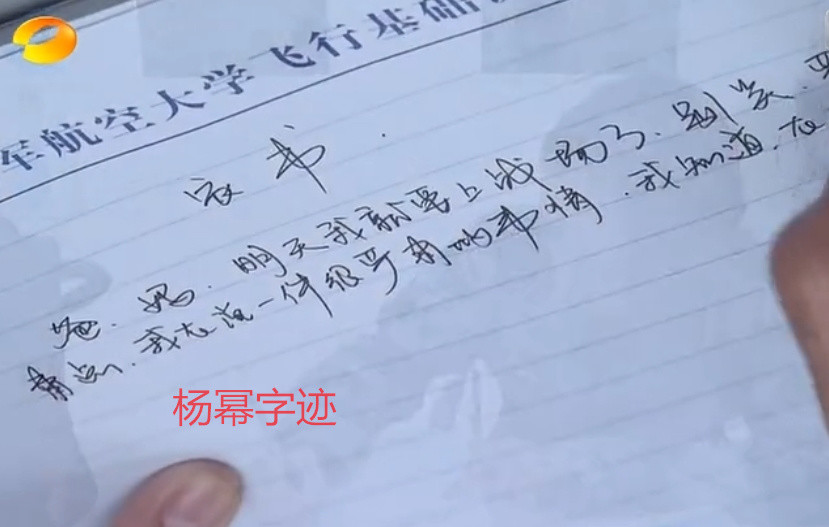 军航空大学飞行基础
家书
爸、妈、明天我就要上战场了、别笑、严
肃点、我在说一件很严肃的事情、我知道、在
杨幂字迹